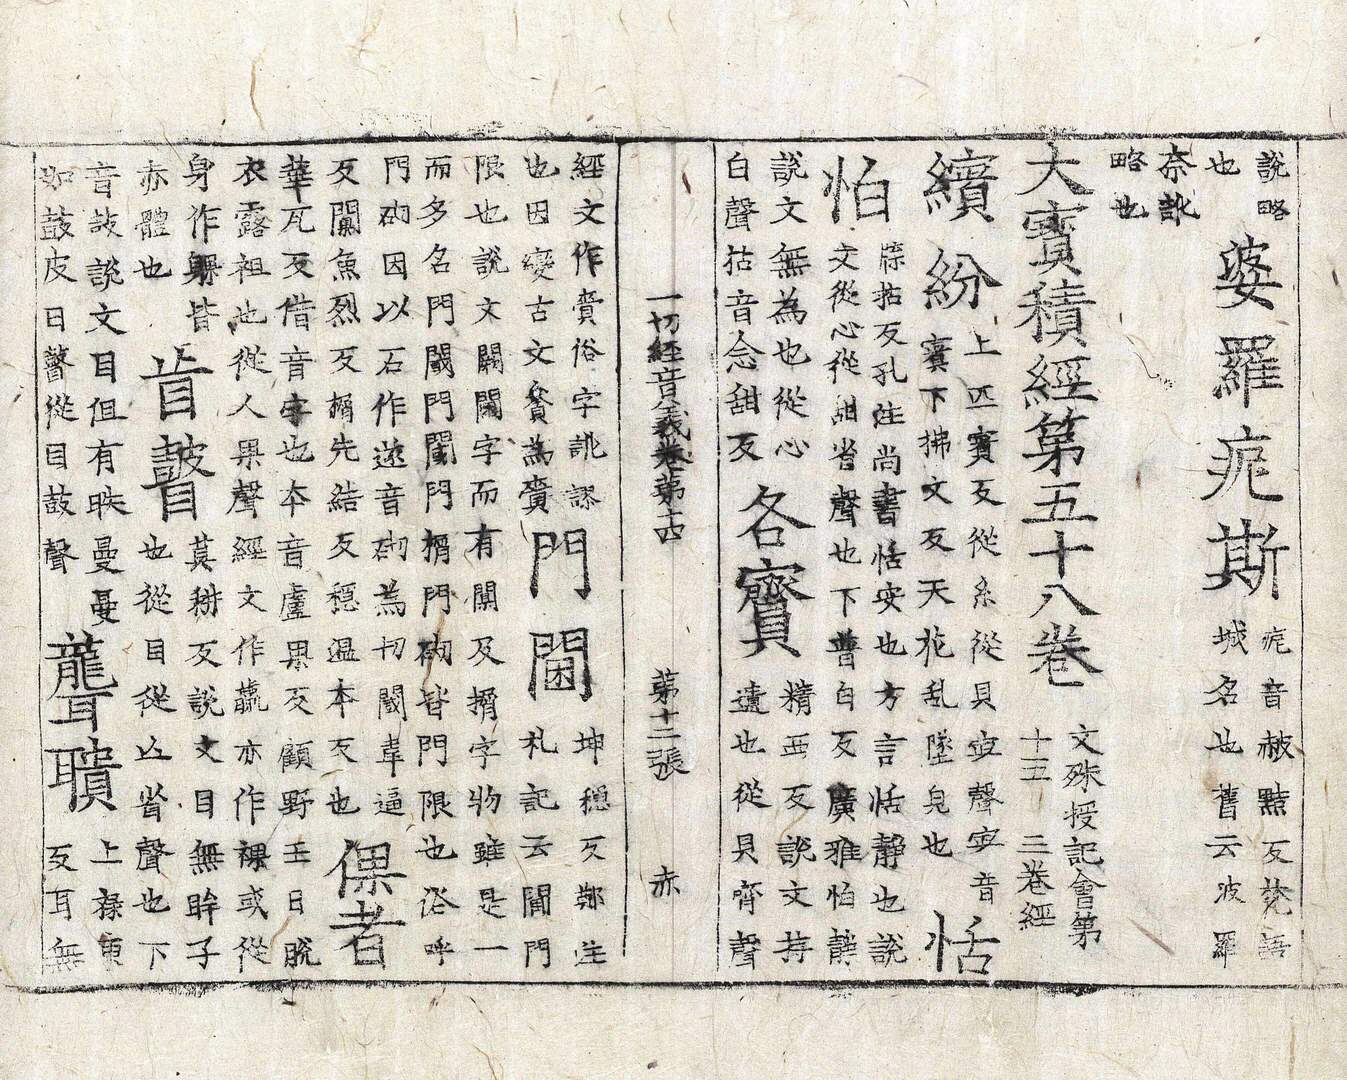 說略
也
婆羅痆斯
痆音赧黠反梵語
城名也舊云波羅
奈訛
略也
大寶積經第五十八卷
文殊授記會第
十五 三卷經
繽紛
上匹賓反從糸從貝𡧍聲𡧍音
賓下拂文反天花乱墜皃也
恬
怕
牒拈反孔注尚書恬安也方言恬靜也說
文從心從甜省聲也下普白反廣雅怕靜
說文無為也從心
白聲拈音念甜反
各賷
精西反說文持
遺也從貝齊聲
一切經音義卷第十四 第十二張 赤
經文作賫俗字訛謬
也因變古文賷為賷
門閫
坤穩反鄭注
禮記云閫門
限也說文闑閫字而有閫及㨷字物雖是一
而多名門閾門閫門㨷門砌皆門限也俗呼
門砌因以石作遂音砌為切閾韋逼
反闑魚烈反㨷先結反穩溫本反也
倮者
華瓦反借音字也本音盧果反顧野王曰脫
衣露袒也從人果聲經文作蠃亦作裸或從
身作躶皆
赤體也
盲瞽
莫耕反說文目無眸子
也從目從亡省聲也下
音鼓說文目但有眹曼曼
如鼓皮曰瞽從目鼓聲
聾聵
上祿東
反耳無